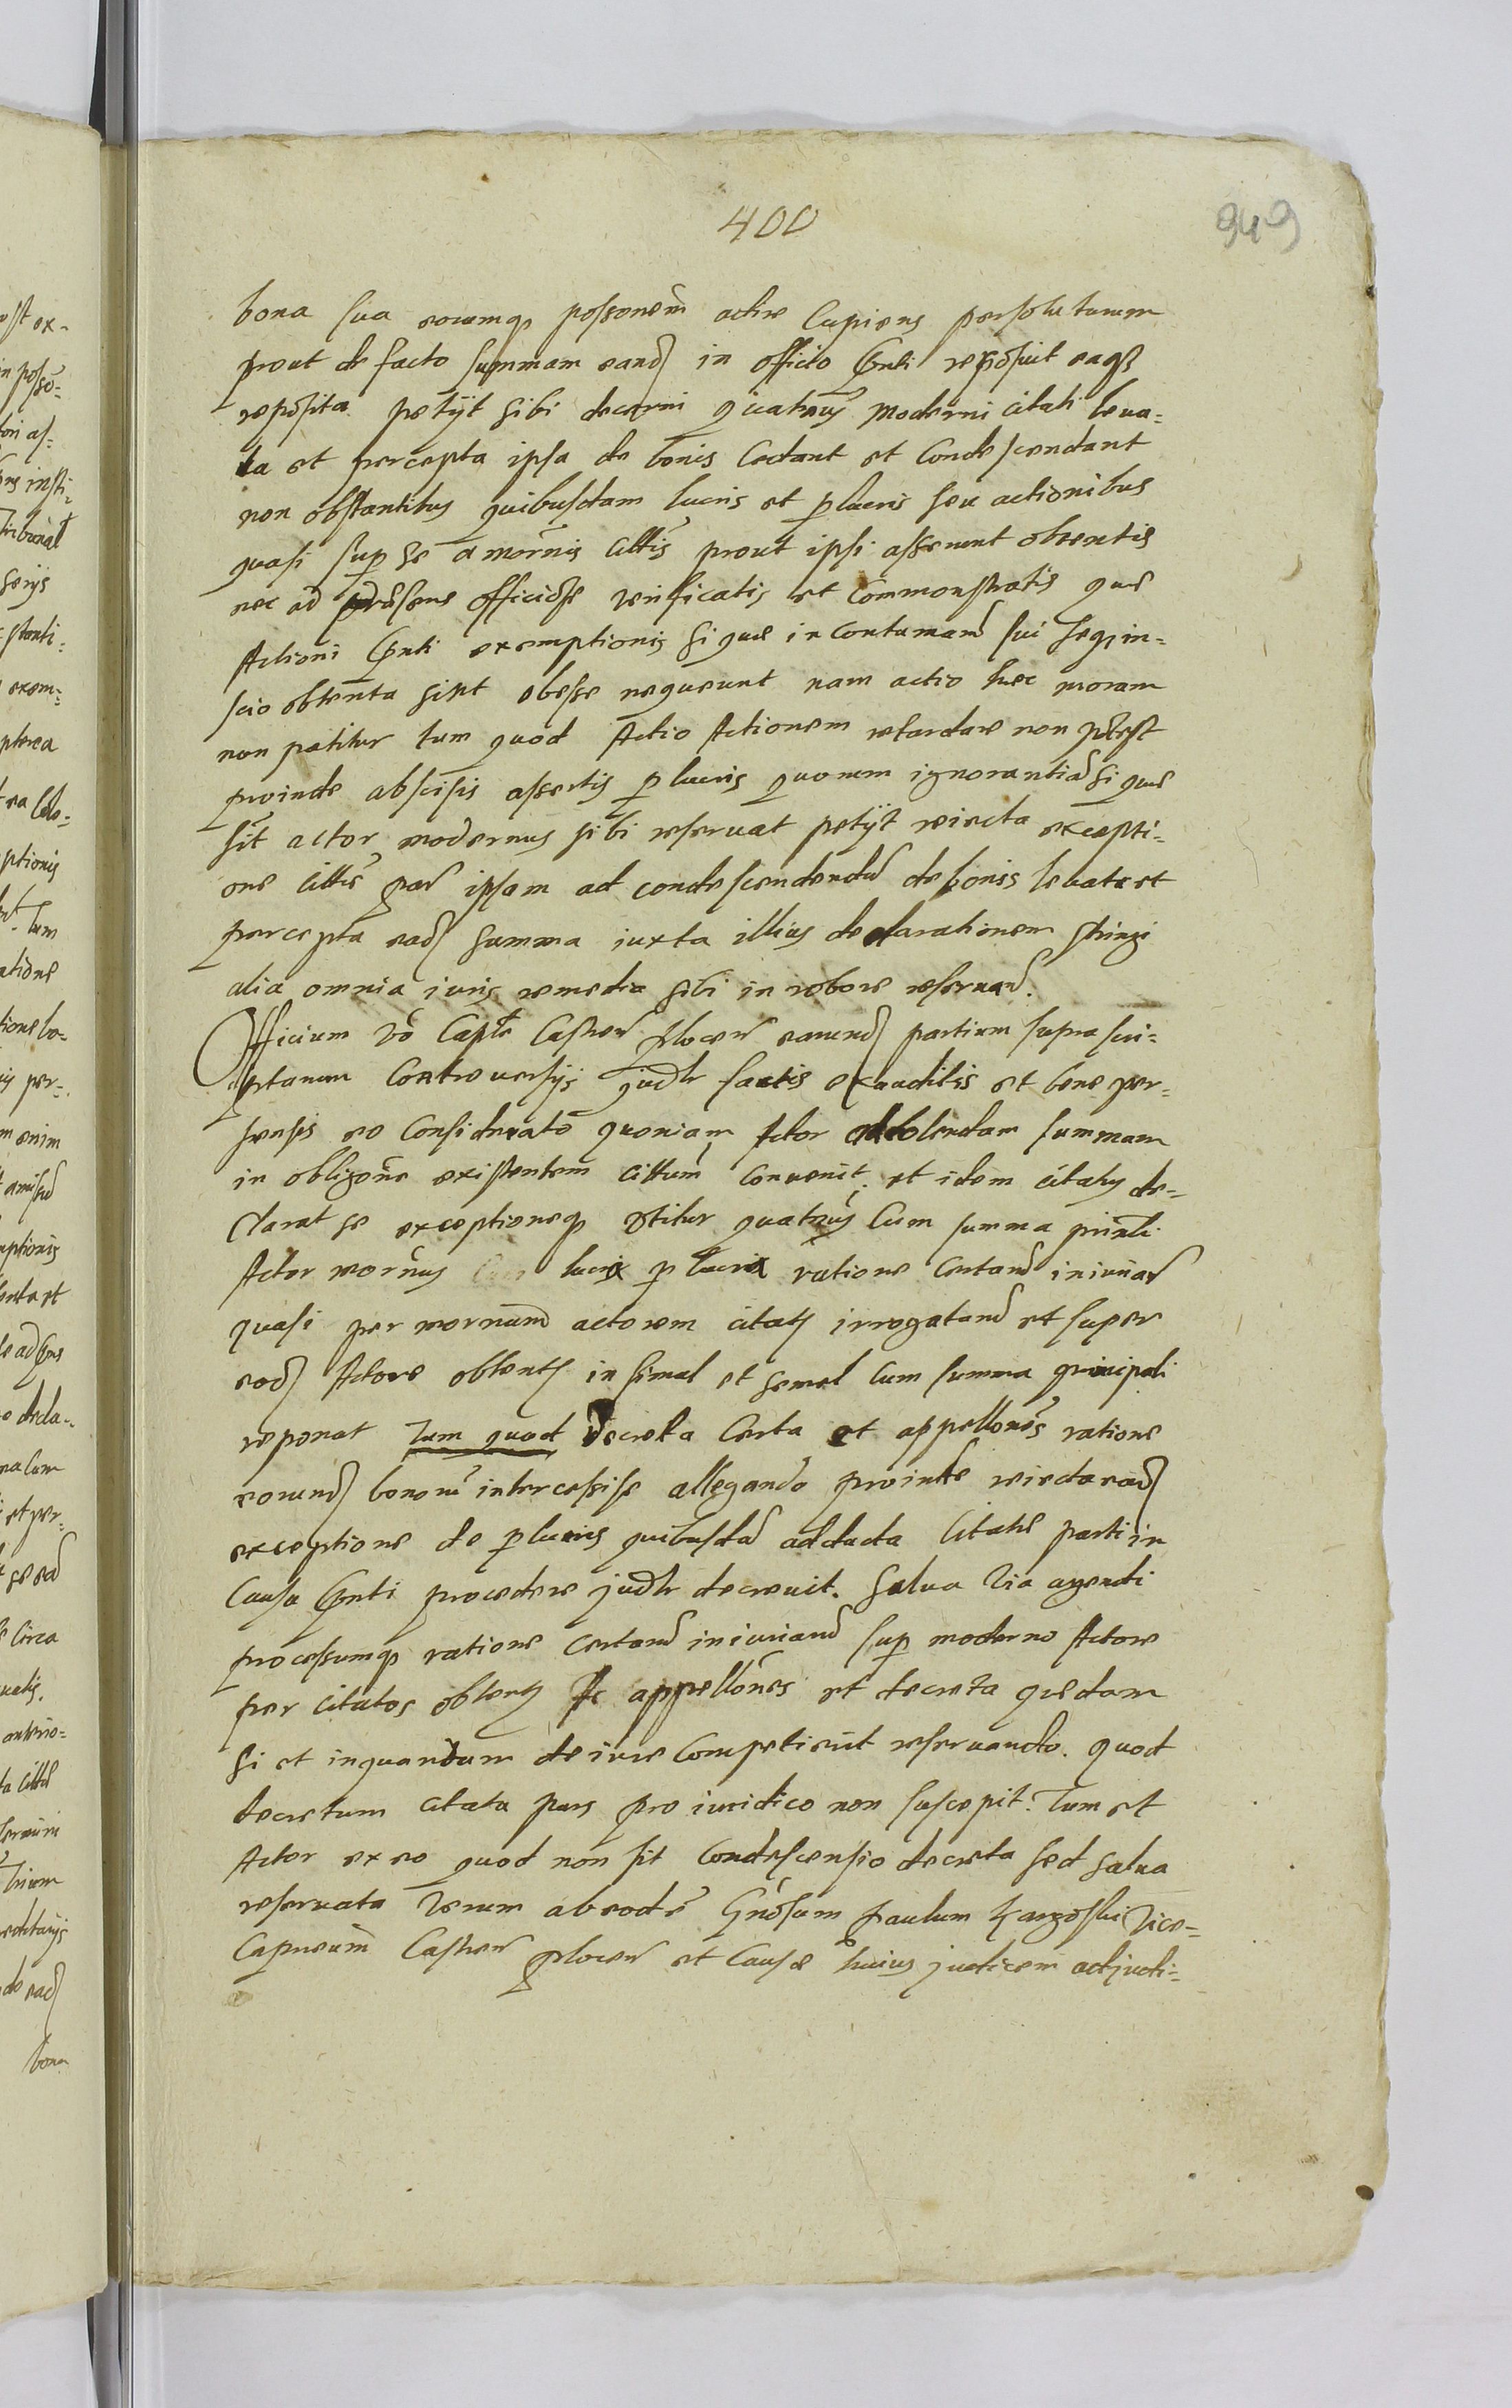 400
949
bona sua eorumq possonem adire Cupiens persolutarum
prout de facto summam eand in officio Gnti reposuit eaqȝ
reposita petÿt sibi decerni qͧatenus moderni citati leua-
ta et percepta ipsa de bonis Cedant et Condescendant
non obstantibus quibusdam lucris et plucris seu actionibus
quasi sup se a mornis Cittis prout ipsi asserunt obtentis
nec ad præsens officiose verificatis et Commonstratis que
Actioni Gnti exemptionis si que in Contumam sui seq in-
scio obtenta sint obesse nequeunt nam actio hec moram
non patitur tum quod Actio Actionem retardare non potest
proinde abscisis assertis plucris quorum ignorantia si que
sit actor modernus sibi reseruat petÿt reiecta excepti-
one Citte par ipsam ad condescendend de bonis leuata et
percepta ead summa iuxta illius declarationem stringi
alia omnia iuris remedia sibi in robore reseruan.
Officium vo Capte Castren Plocen earund partium suprascri-
ptarum Controuersÿs judr satis exauditis et bene per-
pensis eo Considerato quoniam Actor ad tolendam summam
in obligone existentem Cittum Conuenit; et idem citatus de-
clarat se exceptioneq vtitur quatenus Cum summa prinli
Actor mornus lucra plucra ratione Certar iniuriar
quasi per mornum actorem citatis irrogatar et super
eod Actore obtent in simul et semel Cum summa principali
reponat Tum quod Decreta Certa et appellones ratione
eorund bonorum intercessisse allegando proinde reiecta ead
exceptione de plucris quibusda adducta Citate parti in
Causa Gnti procedere judr decreuit. Salua via agendi
processumq ratione Certar iniuriar sup moderno Actore
per citatos obtent Ac appellones et decreta quedam
si et inquantum de iure Competierit reseruando. quod
decretum citata pars pro iuridico non suscepit. Tum et
Actor ex eo quod non sit Condescensio decreta sed salua
reseruata verum ab eode Gnosum Paulum Kargoski Vice-
Capneum Castren Plocen et Cause huius judicem adjudi-